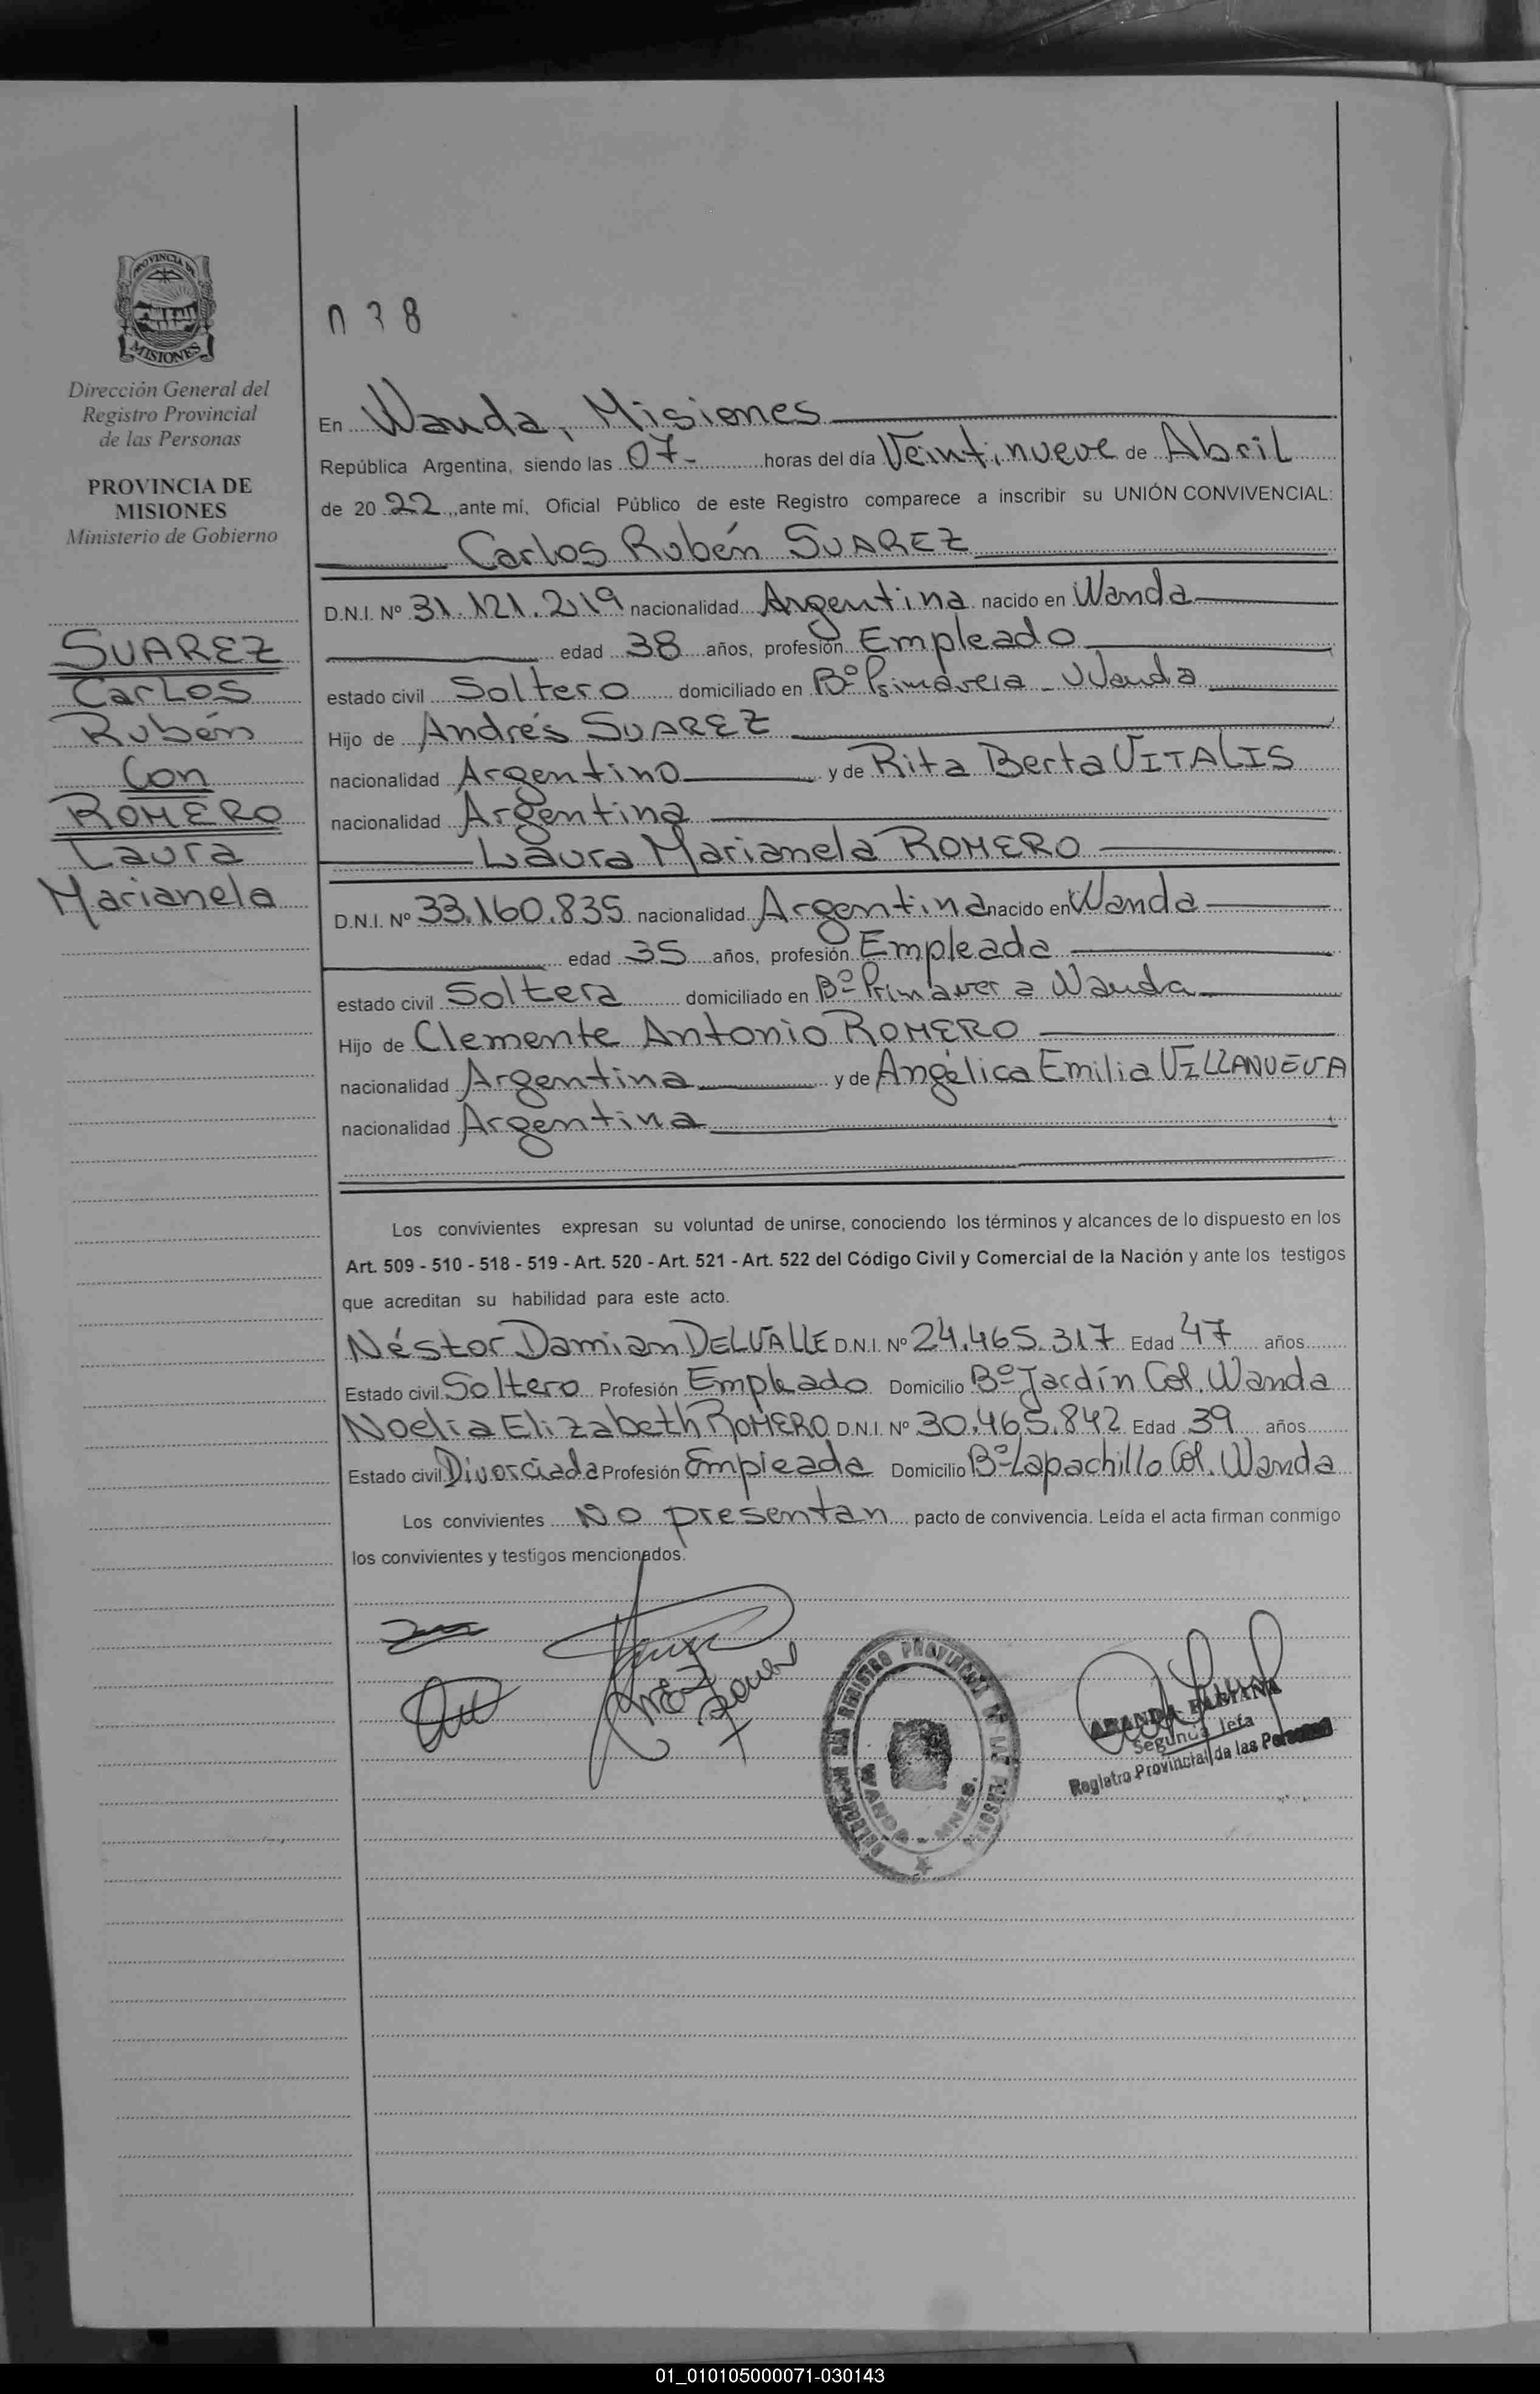 PROVINCIA DE
MISIONES
Dirección General del
Registro Provincial
de las Personas
PROVINCIA DE
MISIONES
Ministerio de Gobierno
SUAREZ
Carlos
Rubén
Con
ROMERO
Laura
Marianela
038
En Wanda, Misiones
República Argentina, siendo las 07- horas del día Veintinueve de Abril
de 2022, ante mí, Oficial Público de este Registro comparece a inscribir su UNIÓN CONVIVENCIAL:
Carlos Rubén SUAREZ
D.N.I. Nº 31.121.219 nacionalidad Argentina nacido en Wanda
edad 38 años, profesión Empleado
estado civil Soltero domiciliado en Bº Primavera - Wanda
Hijo de Andrés SUAREZ
nacionalidad Argentino y de Rita Berta VITALIS
nacionalidad Argentina
Laura Marianela ROMERO
D.N.I. Nº 33.160.835 nacionalidad Argentina nacido en Wanda
edad 35 años, profesión Empleada
estado civil Soltera domiciliado en Bº Primavera Wanda
Hijo de Clemente Antonio ROMERO
nacionalidad Argentina y de Angélica Emilia VILLANUEVA
nacionalidad Argentina
Los convivientes expresan su voluntad de unirse, conociendo los términos y alcances de lo dispuesto en los
Art. 509 - 510 - 518 - 519 - Art. 520 - Art. 521 - Art. 522 del Código Civil y Comercial de la Nación y ante los testigos
que acreditan su habilidad para este acto.
Néstor Damian DELVALLE D.N.I. Nº 24.465.317 Edad 47 años
Estado civil Soltero Profesión Empleado Domicilio Bº Jardín Col. Wanda
Noelia Elizabeth ROMERO D.N.I. Nº 30.465.842 Edad 39 años
Estado civil Divorciada Profesión Empleada Domicilio Bº Lapachillo Col. Wanda
Los convivientes No presentan pacto de convivencia. Leída el acta firman conmigo
los convivientes y testigos mencionados.
REGISTRO PROVINCIAL DE LAS PERSONAS
WANDA - MNES.
ARANDA FABIANA
Segunda Jefa
Registro Provincial de las Personas
01_010105000071-030143